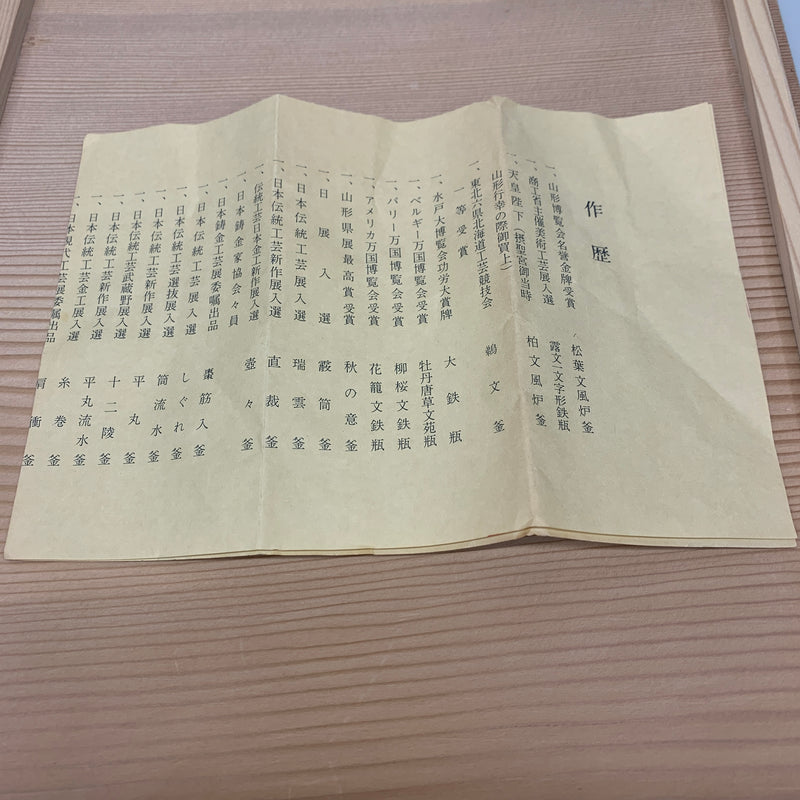 作歴
一、山形博覧会名誉金牌受賞 松葉文風炉釜
一、商工省主催美術工芸展入選 露文一文字形鉄瓶
一、天皇陛下(摂聖宮御当時 柏文風炉釜
山形行幸の際御買上)
一、東北六県北海道工芸競技会 鵜文釜
一等受賞
一、水戸大博覧会功労大賞牌 大鉄瓶
一、ベルギー万国博覧会受賞 牡丹唐草文苑瓶
一、パリー万国博覧会受賞 柳桜文鉄瓶
一、アメリカ万国博覧会受賞 花籠文鉄瓶
一、山形県展最高賞受賞 秋の意釜
一、日展入選 霰筒釜
一、日本伝統工芸展入選 瑞雲釜
一、日本伝統工芸新作展入選 直裁釜
一、伝統工芸日本金工新作展入選 壺々釜
一、日本鋳金家協会々員
一、日本鋳金工芸展委嘱出品
一、日本伝統工芸展入選 棗筋入釜
一、日本伝統工芸選抜展入選 しぐれ釜
一、日本伝統工芸新作展入選 筒流水釜
一、日本伝統工芸武蔵野展入選 平丸釜
一、日本伝統工芸新作展入選 十二陵釜
一、日本伝統工芸金工展入選 平丸流水釜
一、日本現代工芸展委嘱出品 糸巻釜
肩衝釜